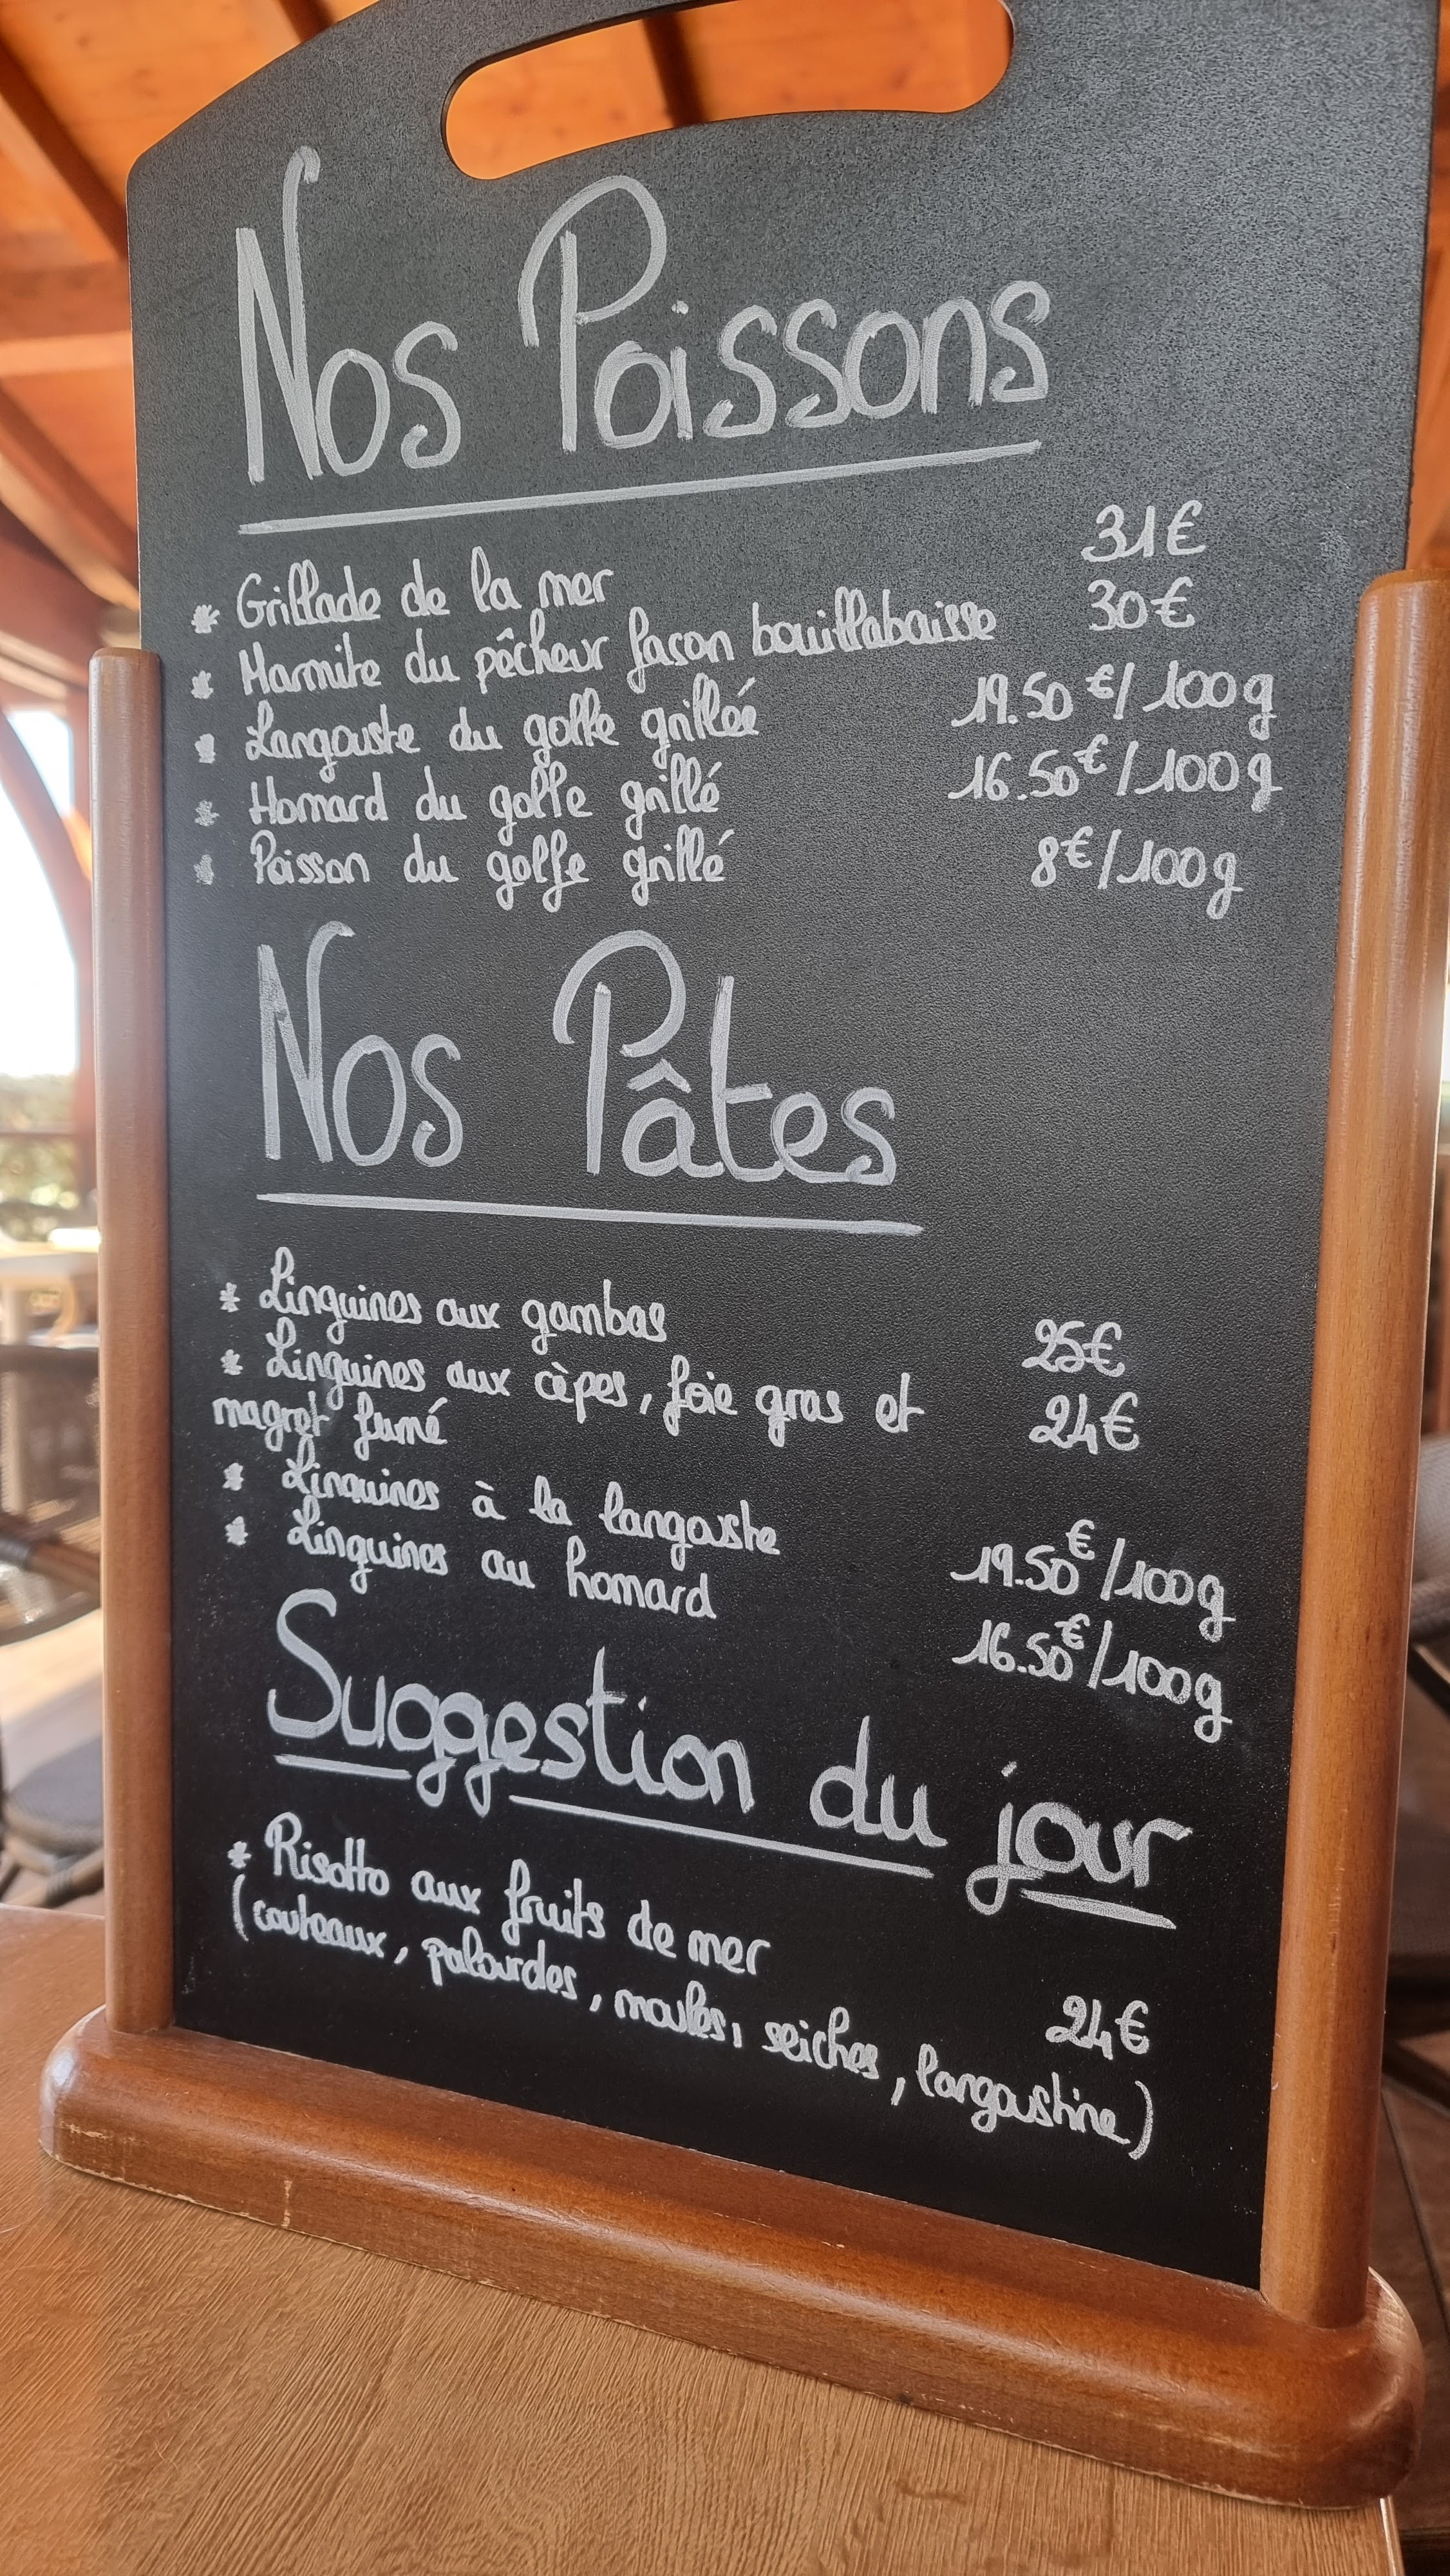 Nos Poissons
* Grillade de la mer 31€
* Marmite du pêcheur façon bouillabaisse 30€
* Langouste du golfe grillée 19.50€/100g
* Homard du golfe grillé 16.50€/100g
* Poisson du golfe grillé 8€/100g
Nos Pâtes
* Linguines aux gambas 25€
* Linguines aux cèpes, foie gras et 24€
magret fumé
* Linguines à la langouste 19.50€/100g
* Linguines au homard 16.50€/100g
Suggestion du jour
* Risotto aux fruits de mer 24€
(couteaux, palourdes, moules, seiches, langoustine)